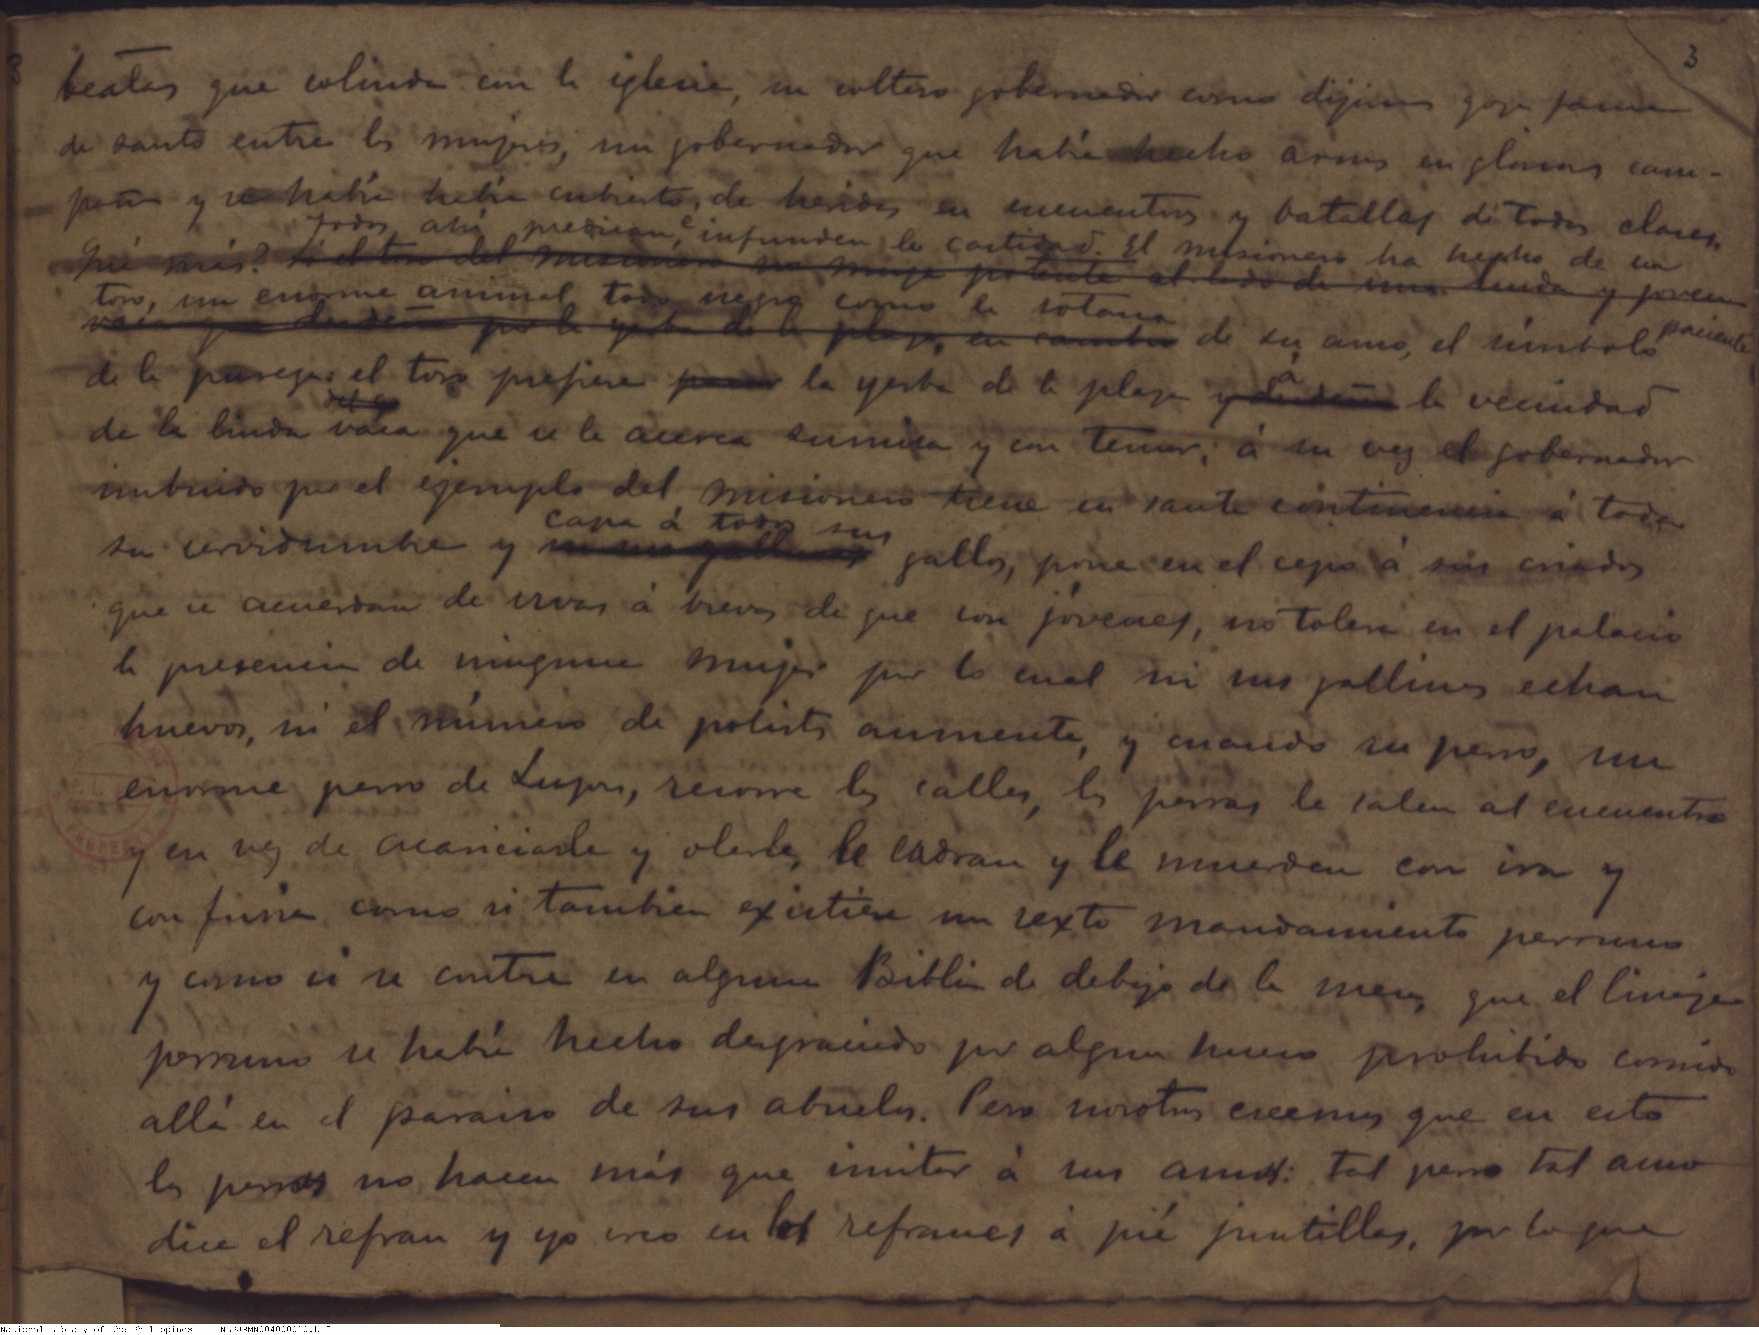 3
beatas que colinda con la iglesia, su soltero gobernador como dijimos goza fama
de santo entre las mujeres, un gobernador que había hecho armas en gloriosas cam-
pañas y se había había cubierto de heridas en encuentros y batallas de todas clases.
todos ahí predican é infunden la castidad. El misionero ha hecho de un
Qué más? Si el toro del misionero no muge potente al lado de una linda y joven
toro, un enorme animal todo negro como la sotana
vaca que desdeña por la yerba de la plaza, en cambio de su amo, el símbolo paciente
de la pureza: el toro prefiere la yerba de la plaza y desdeña á la vecindad
de la linda vaca que se le acerca sumisa y con temor; á su vez el gobernador
imbuido por el ejemplo del misionero tiene en santa continencia á toda
capa á todos sus
su servidumbre y gallos, pone en el cepo á sus criados
que se acuerdan de uvas á brevas de que son jóvenes, no tolera en el palacio
la presencia de ninguna mujer por lo cual ni sus gallinas echan
huevos, ni el número de polists aumenta, y cuando su perro, un
enorme perro de recorre las calles, las perras le salen al encuentro
y en vez de acariciarle y olerle, le ladran y le muerden con ira y
con furia como si tambien existiese un sexto mandamiento perruno
y como si se contara en alguna Biblia de debajo de la mesa, que el linaje
perruno se había hecho desgraciado por algun hueso prohibido comido
allá en el paraiso de sus abuelos. Pero nosotros creemos que en esto
las perras no hacen más que imitar á sus amos: tal perro tal amo
dice el refran y yo creo en los refranes á pié juntillas, por lo que
National Library of the Philippines